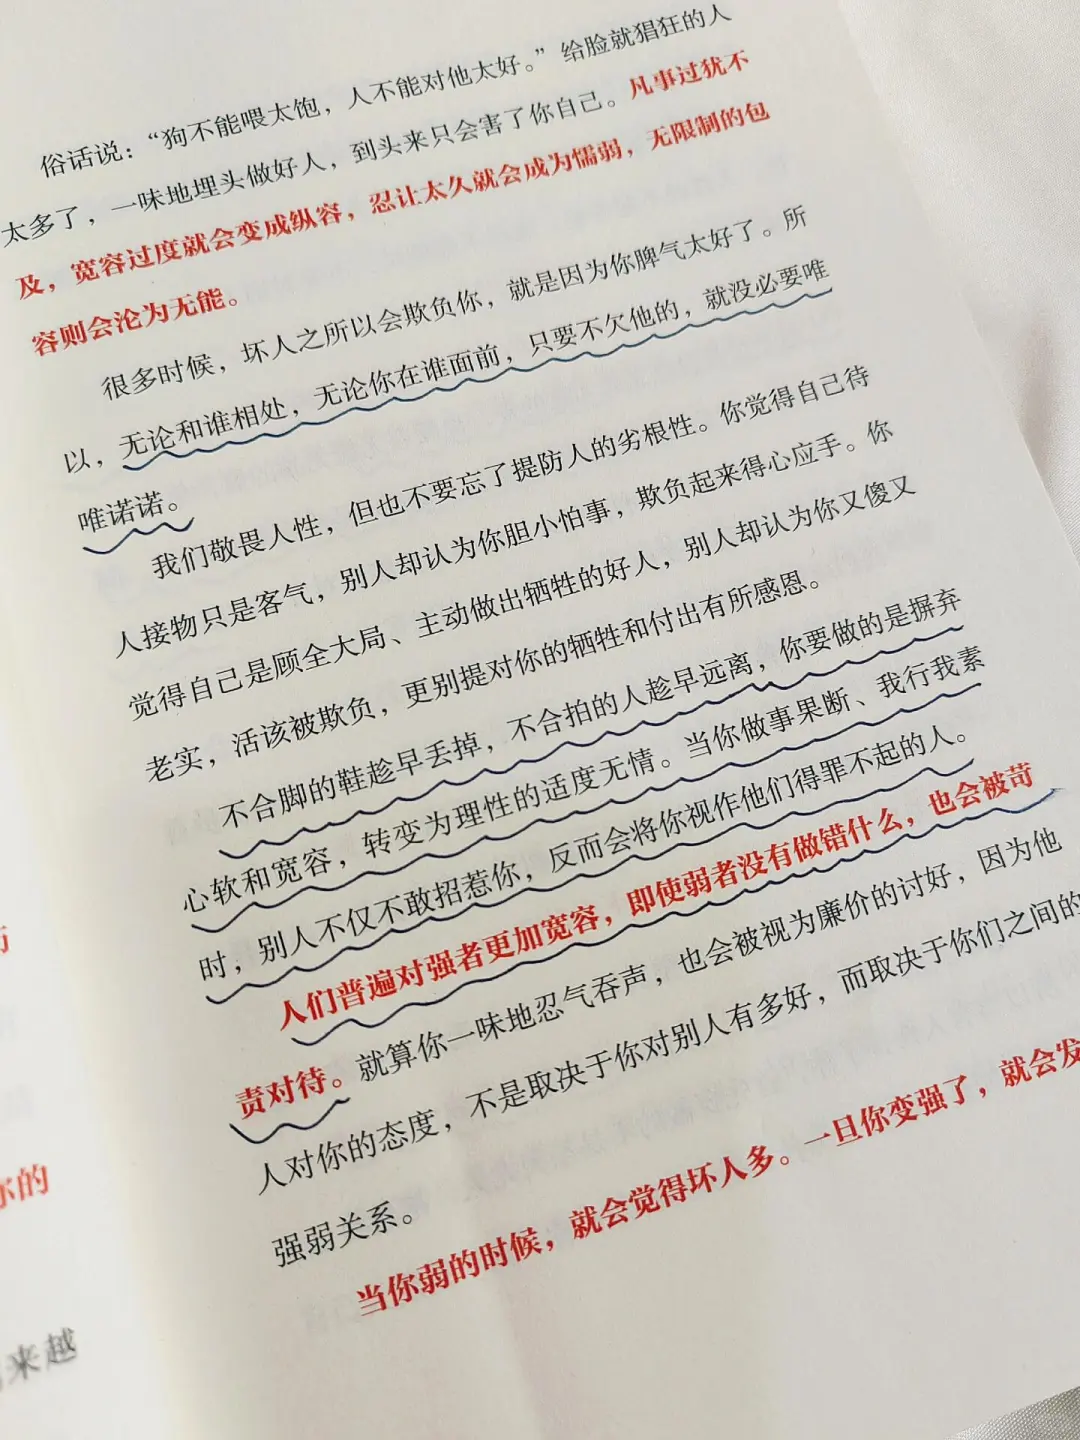 俗话说：“狗不能喂太饱，人不能对他太好。”给脸就猖狂的人
太多了，一味地埋头做好人，到头来只会害了你自己。凡事过犹不
及，宽容过度就会变成纵容，忍让太久就会成为懦弱，无限制的包
容则会沦为无能。
很多时候，坏人之所以会欺负你，就是因为你脾气太好了。所
以，无论和谁相处，无论你在谁面前，只要不欠他的，就没必要唯
唯诺诺。
我们敬畏人性，但也不要忘了提防人的劣根性。你觉得自己待
人接物只是客气，别人却认为你胆小怕事，欺负起来得心应手。你
觉得自己是顾全大局、主动做出牺牲的好人，别人却认为你又傻又
老实，活该被欺负，更别提对你的牺牲和付出有所感恩。
不合脚的鞋趁早丢掉，不合拍的人趁早远离，你要做的是摒弃
心软和宽容，转变为理性的适度无情。当你做事果断、我行我素
时，别人不仅不敢招惹你，反而会将你视作他们得罪不起的人。
人们普遍对强者更加宽容，即使弱者没有做错什么，也会被苛
责对待。就算你一味地忍气吞声，也会被视为廉价的讨好，因为他
人对你的态度，不是取决于你对别人有多好，而取决于你们之间的
强弱关系。
当你弱的时候，就会觉得坏人多。一旦你变强了，就会发
你的
来越